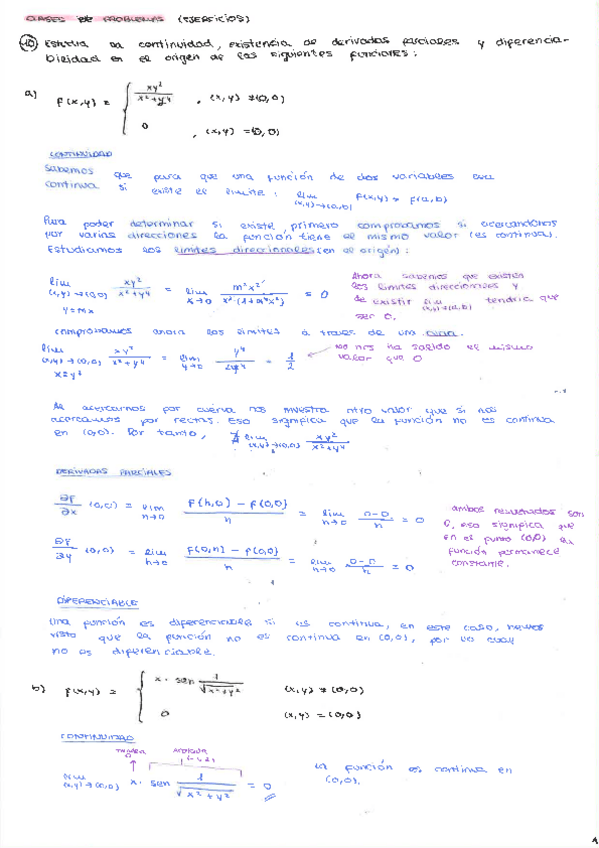 CLASES DE PROBLEMAS (EJERCICIOS)
10 Estudia la continuidad, existencia de derivadas parciales y diferencia-
bilidad en el origen de las siguientes funciones:
a) f(x,y) = { xy² / x²+y⁴ , (x,y) ≠ (0,0)
0 , (x,y) = (0,0)
CONTINUIDAD
Sabemos que para que una función de dos variables sea
continua si existe el límite: lim (x,y)→(a,b) f(x,y) = f(a,b)
Para poder determinar si existe, primero comprobamos si acercándonos
por varias direcciones la función tiene el mismo valor (es continua).
Estudiamos los límites direccionales (en el origen):
lim (x,y)→(0,0) y=mx xy² / x²+y⁴ = lim x→0 m²x³ / x²·(1+m⁴x²) = 0
Ahora sabemos que existen
los límites direccionales y
de existir lim (x,y)→(0,0) tendría que
ser 0.
Comprobamos ahora los límites a través de una curva.
lim (x,y)→(0,0) x=y² xy² / x²+y⁴ = lim y→0 y⁴ / 2y⁴ = 1/2
no nos ha salido el mismo
valor que 0
Al acercarnos por curva nos muestra otro valor que si nos
acercamos por rectas. Eso significa que la función no es continua
en (0,0). Por tanto, ∄ lim (x,y)→(0,0) xy² / x²+y⁴
DERIVADAS PARCIALES
∂f/∂x (0,0) = lim h→0 f(h,0) - f(0,0) / h = lim h→0 0-0 / h = 0
∂f/∂y (0,0) = lim h→0 f(0,h) - f(0,0) / h = lim h→0 0-0 / h = 0
ambos resultados son
0, eso significa que
en el punto (0,0) la
función permanece
constante.
DIFERENCIABLE
Una función es diferenciable si es continua, en este caso, hemos
visto que la función no es continua en (0,0), por lo cual
no es diferenciable.
b) f(x,y) = { x · sen 1/√x²+y² (x,y) ≠ (0,0)
0 (x,y) = (0,0)
CONTINUIDAD
lim (x,y)→(0,0) x · sen 1/√x²+y² = 0
La función es continua en
(0,0).